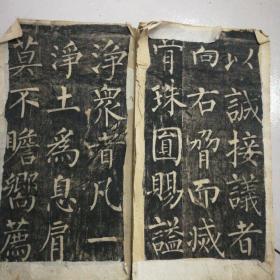 以誠接議者
向右脅而滅
骨珠圓賜謚
淨衆者凡一
淨土為息肩
莫不瞻嚮薦